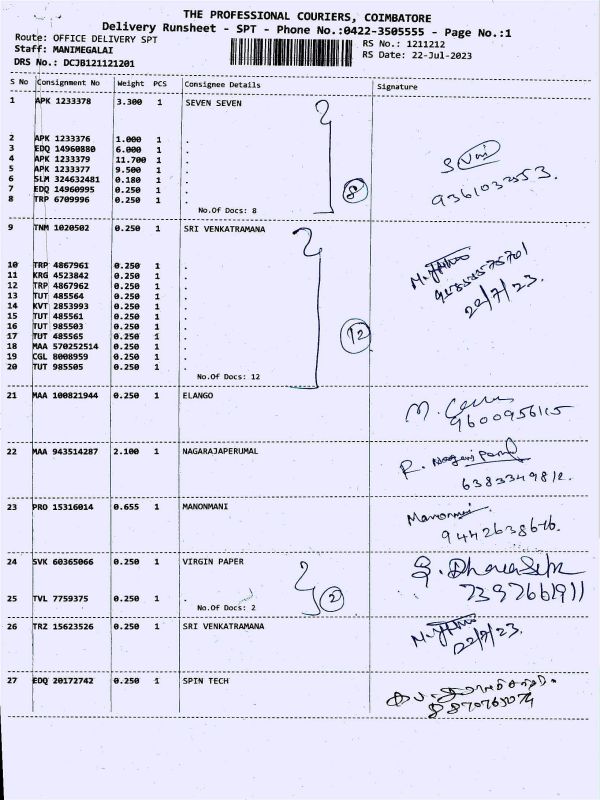 THE PROFESSIONAL COURIERS, COIMBATORE
Delivery Runsheet - SPT - Phone No.:0422-3505555 - Page No.:1
Route: OFFICE DELIVERY SPT
RS No.: 1211212
Staff: MANIMEGALAI
RS Date: 22-Jul-2023
DRS No.: DCJB121121201
S No Consignment No Weight PCS Consignee Details Signature
1 APK 1233378 3.300 1 SEVEN SEVEN
2 APK 1233376 1.000 1 .
3 EDQ 14960880 6.000 1 .
4 APK 1233379 11.700 1 .
5 APK 1233377 9.500 1 .
6 SLM 324632481 0.180 1 .
7 EDQ 14960995 0.250 1 . 8
8 TRP 6709996 0.250 1 .
No.Of Docs: 8
9 TNM 1020502 0.250 1 SRI VENKATRAMANA
10 TRP 4867961 0.250 1 .
11 KRG 4523842 0.250 1 .
12 TRP 4867962 0.250 1 .
13 TUT 485564 0.250 1 . 22/7/23.
14 KVT 2853993 0.250 1 .
15 TUT 485561 0.250 1 .
16 TUT 985503 0.250 1 . 12
17 TUT 485565 0.250 1 .
18 MAA 570252514 0.250 1 .
19 CGL 8008959 0.250 1 .
20 TUT 985505 0.250 1 .
No.Of Docs: 12
21 MAA 100821944 0.250 1 ELANGO
22 MAA 943514287 2.100 1 NAGARAJAPERUMAL
23 PRO 15316014 0.655 1 MANONMANI Manonmani
9442638676.
24 SVK 60365066 0.250 1 VIRGIN PAPER
7397661911
25 TVL 7759375 0.250 1 . 2
No.Of Docs: 2
26 TRZ 15623526 0.250 1 SRI VENKATRAMANA
22/7/23.
27 EDQ 20172742 0.250 1 SPIN TECH